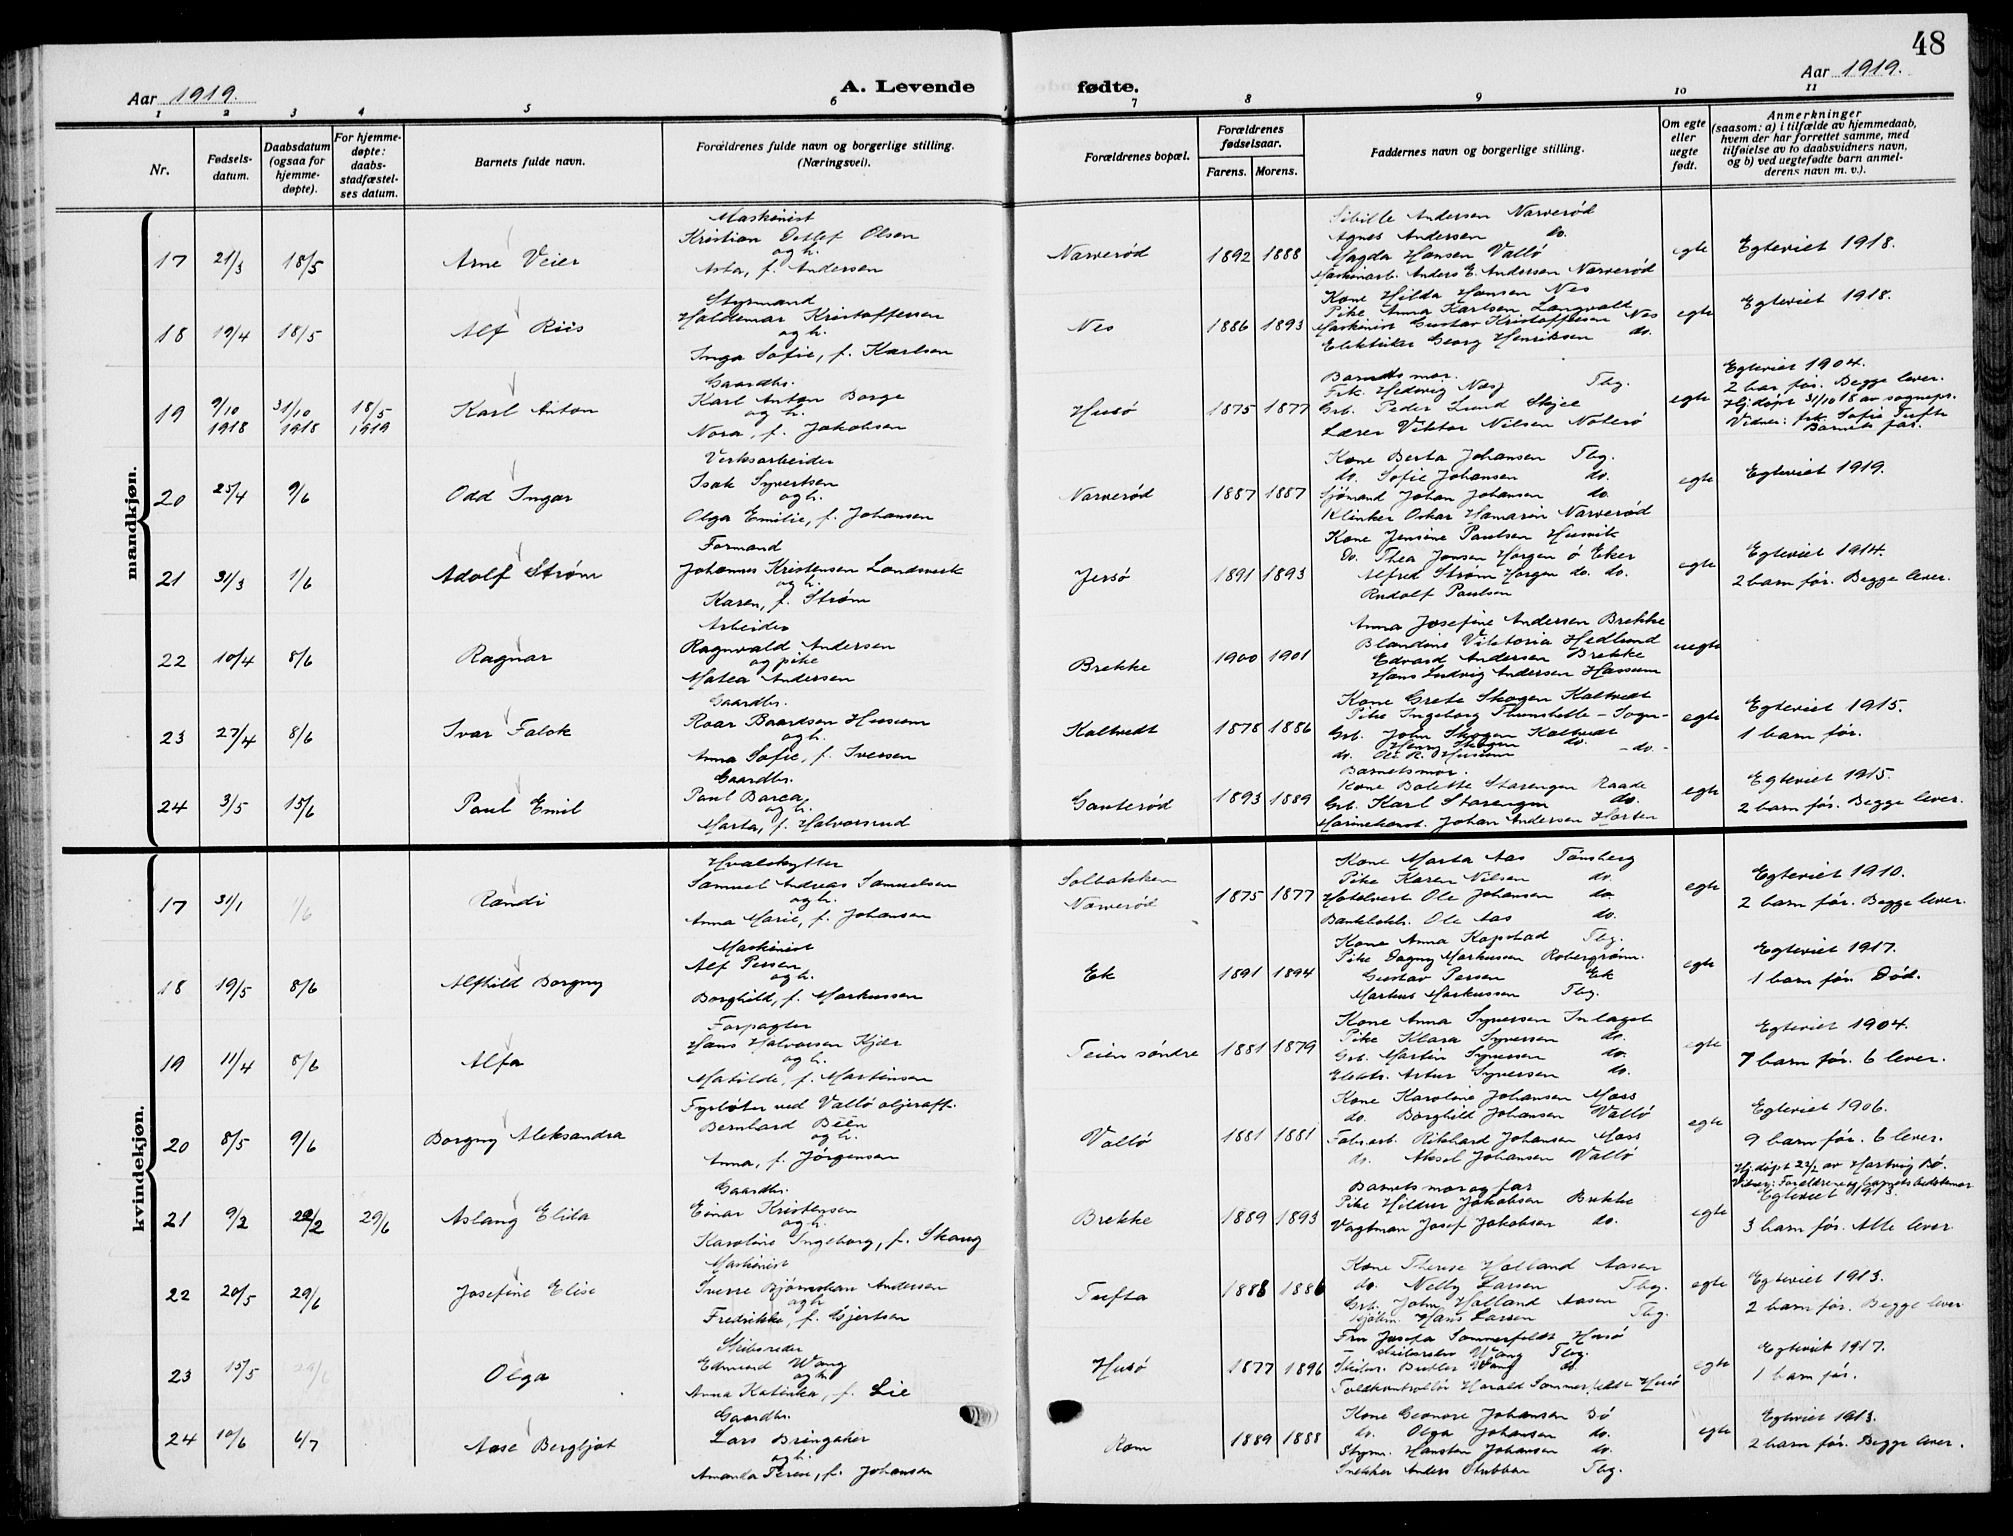 48
Aar 1919.
A. Levende fødte.
Aar 1919.
1 2 3 4 5 6 7 8 9 10 11
Nr.
Fødsels-
datum.
Daabsdatum
(ogsaa for
hjemme-
døpte).
For hjemme-
døpte:
daabs-
stadfæstel-
ses datum.
Barnets fulde navn.
Forældrenes fulde navn og borgerlige stilling.
(Næringsvei).
Forældrenes bopæl.
Forældrenes
fødselsaar.
Farens. Morens.
Faddernes navn og borgerlige stilling.
Om egte
eller
uegte
født.
Anmerkninger
(saasom: a) i tilfælde av hjemmedaab,
hvem der har forrettet samme, med
tilføielse av to daabsvidners navn,
og b) ved uegtefødte barn anmel-
derens navn m. v.).
mandkjøn.
17 21/3 18/5 Arne Veier
Maskinist
Kristian Detlef Olsen
og h.
Asta, f. Andersen
Narverød 1892 1888
Sibille Andersen Narverød
Agnes Andersen do.
Magda Hansen Vallö
Maskinarb. Anders E. Andersen Narverød
egte Egteviet 1918.
18 19/4 18/5 Alf Riis
Styrmand
Haldemar Kristoffersen
og h.
Inga Sofie, f. Karlsen
Nes 1886 1893
Kone Hilda Hansen Nes
Pike Anna Karlsen Langvald
Maskinist Gustav Kristoffersen Nes
Elektriker Georg Henriksen do.
egte Egteviet 1918.
19 9/10 1918 31/10 1918 18/5 1919 Karl Anton
Gaardbr.
Karl Anton Borge
og h.
Nora, f. Jakobsen
Husö 1875 1877
Barnets mor.
Frk. Hedvig Næs Tbg.
Grb. Peder Lund Skjee
Lærer Viktor Nilsen Noterö
egte Egteviet 1904.
2 bar før. Begge lever.
Hj.døpt 31/10 18 av sognepr.
Vidner: frk. Sofie Tufte
Barnets far.
20 25/4 9/6 Odd Ingar
Verksarbeider
Isak Syvertsen
og h.
Olga Emilie, f. Johansen
Narverød 1887 1887
Kone Berta Johansen Tbg.
do. Sofie Johansen do.
Sjömand Johan Johansen do.
Klinker Oskar Hamarin Narverød
egte Egteviet 1919.
21 31/3 1/6 Adolf Strøm
Formand
Johannes Kristensen Landsverk
og h.
Karen, f. Strøm
Jersö 1891 1893
Kone Jensine Paulsen Husvik
do. Thea Jonsen Horgen ö Eker
Alfred Strøm Horgen do. do.
Rudolf Paulsen
egte Egteviet 1914.
2 barn før. Begge lever.
22 10/4 8/6 Ragnar
Arbeider
Ragnvald Andersen
og pike
Matea Andersen
Brekke 1900 1901
Anna Josefine Andersen Brekke
Blandine Viktoria Hedlund
Edvard Andersen Brekke
Hans Ludvig Andersen Hassum
uegte
23 27/4 8/6 Ivar Falck
Gaardbr.
Roar Baardsen Hussum
og h.
Anna Sofie, f. Iversen
Kaltvedt 1878 1886
Kone Grete Skogen Kaltvedt
Pike Ingeborg Thunshelle - Sogn -
Grb. John Skogen Kaltvedt
Henry Skogen do.
do. Ole R. Hussum - do. -
egte Egteviet 1915.
1 barn før.
24 3/5 15/6 Paul Emil
Gaardbr.
Paul Barca
og h.
Marta, f. Halvorsrud
Gauterød 1893 1889
Barnets mor.
Kone Bolette Starengen Raade
Grb. Karl Starengen do.
Marinekonst. Johan Andersen Horten
egte Egteviet 1915.
2 barn før. Begge lever.
kvindekjøn.
17 31/1 1/6 Randi
Hvalskytter
Samuel Andreas Samuelsen
og h.
Anna Marie, f. Johansen
Solbakken
Narverød 1875 1877
Kone Marta Aas Tønsberg
Pike Karen Nilsen do.
Hotelvert Ole Johansen do.
Bankbokh. Ole Aas do.
egte Egteviet 1910.
2 barn før. Begge lever.
18 19/5 8/6 Alfhild Borgny
Maskinist
Alf Persen
og h.
Borghild, f. Markussen
Ek 1891 1894
Kone Anna Kopstad Tbg.
Pike Dagny Markussen Robergrønn.
Gustav Persen Ek
Markus Markussen Tbg.
egte Egteviet 1917.
1 barn før. Død.
19 11/4 8/6 Alfa
Forpagter
Hans Halvorsen Kjær
og h.
Matilde, f. Martinsen
Teien søndre 1881 1879
Kone Anna Syversen Inlaget
Pike Klara Syversen do.
Grb. Martin Syversen do.
Elektr. Artur Syversen do.
egte Egteviet 1904.
7 barn før. 6 lever.
20 8/5 9/6 Borgny Aleksandra
Fyrbøter ved Vallö oljeraff.
Bernhard Bëen
og h.
Anna, f. Jørgensen
Vallö 1881 1881
Kone Karoline Johansen Moss
do. Borghild Johansen Vallö
Fabr.arb. Rikhard Johansen Moss
do. Aksel Johansen Vallö
egte Egteviet 1906.
9 barn før. 6 lever.
21 9/2 22/2 29/6 Aslaug Elida
Gaardbr.
Einar Kristensen
og h.
Karoline Ingeborg, f. Skaug
Brekke 1889 1893
Barnets mor og far
Pike Hildur Jakobsen Brekke
Vagtman Josef Jakobsen do.
egte Hj.døpt 22/2 av Hartvig Bö.
Vidner: Foreldrene og barnets bedstemor
Egteviet 1913.
3 barn før. Alle lever
22 20/5 29/6 Josefine Elise
Maskinist
Sverre Bjørnskau Andersen
og h.
Fredrikke, f. Gjertsen
Tufta 1888 1886
Kone Therese Holland Aasen
do. Nelly Larsen Tbg.
Grb. John Holland Aasen
Sjöm. Hans Larsen Tbg.
egte Egteviet 1913.
2 barn før. Begge lever
23 15/5 29/6 Olga
Skibsreder
Edmund Wang
og h.
Anna Katinka, f. Lie
Husö 1877 1896
Fru Josefa Sommerfeldt Husö
Skibsreder Wang Tbg.
Skibsr. Butler Wang do.
Toldkontrollör Harald Sommerfeldt Husö
egte Egteviet 1917.
1 barn før.
24 10/6 6/7 Aase Bergljot
Gaardbr.
Lars Bringaker
og h.
Amanda Terese, f. Johansen
Rom 1889 1888
Kone Leonore Johansen Bö
do. Olga Johansen do.
Styrm. Hansten Johansen do.
Snekker Anders Stubban Tbg.
egte Egteviet 1913.
2 barn før. Begge lever.